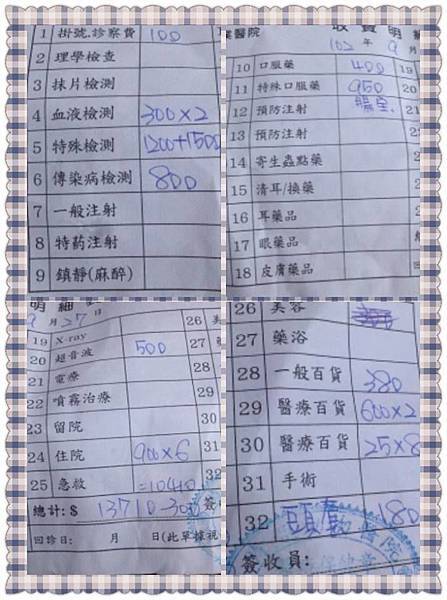 1 掛號.診察費 100
2 理學檢查
3 抹片檢測
4 血液檢測 300×2
5 特殊檢測 1200+1500
6 傳染病檢測 800
7 一般注射
8 特葯注射
9 鎮靜(麻醉)
醫院 收費明
102 年 9 月
10 口服藥 400 19
11 特殊口服藥 950 20
12 預防注射 21
13 預防注射
14 寄生蟲點藥
15 清耳/換藥
16 耳藥品
17 眼藥品
18 皮膚藥品
明細
9 月 27 日
19 X-ray 26 美
20 超音波 500 27
21 電療 28
22 噴霧治療 29
23 留院 30
24 住院 900×6 31
25 急救 32
總計:$ 13710-300
回診日: 月 日(此單據視
26 美容
27 藥浴
28 一般百貨 380
29 醫療百貨 600×2
30 醫療百貨 25×8
31 手術
32 頭套 180
簽收員: